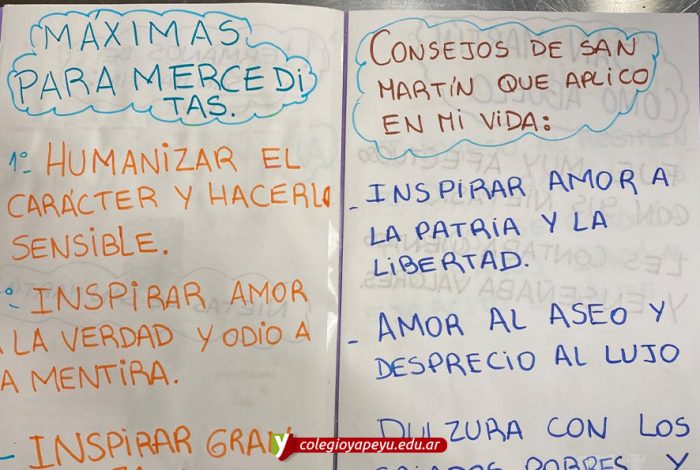 MÁXIMAS
PARA MERCEDI
TAS.
1º- HUMANIZAR EL
CARÁCTER Y HACERLO
SENSIBLE.
º INSPIRAR AMOR
A LA VERDAD Y ODIO A
A MENTIRA.
- INSPIRAR GRAN
CONSEJOS DE SAN
MARTÍN QUE APLICO
EN MI VIDA:
- INSPIRAR AMOR A
LA PATRIA Y LA
LIBERTAD.
- AMOR AL ASEO Y
DESPRECIO AL LUJO
DULZURA CON LOS
CRIADOS POBRES Y
colegioyapeyu.edu.ar